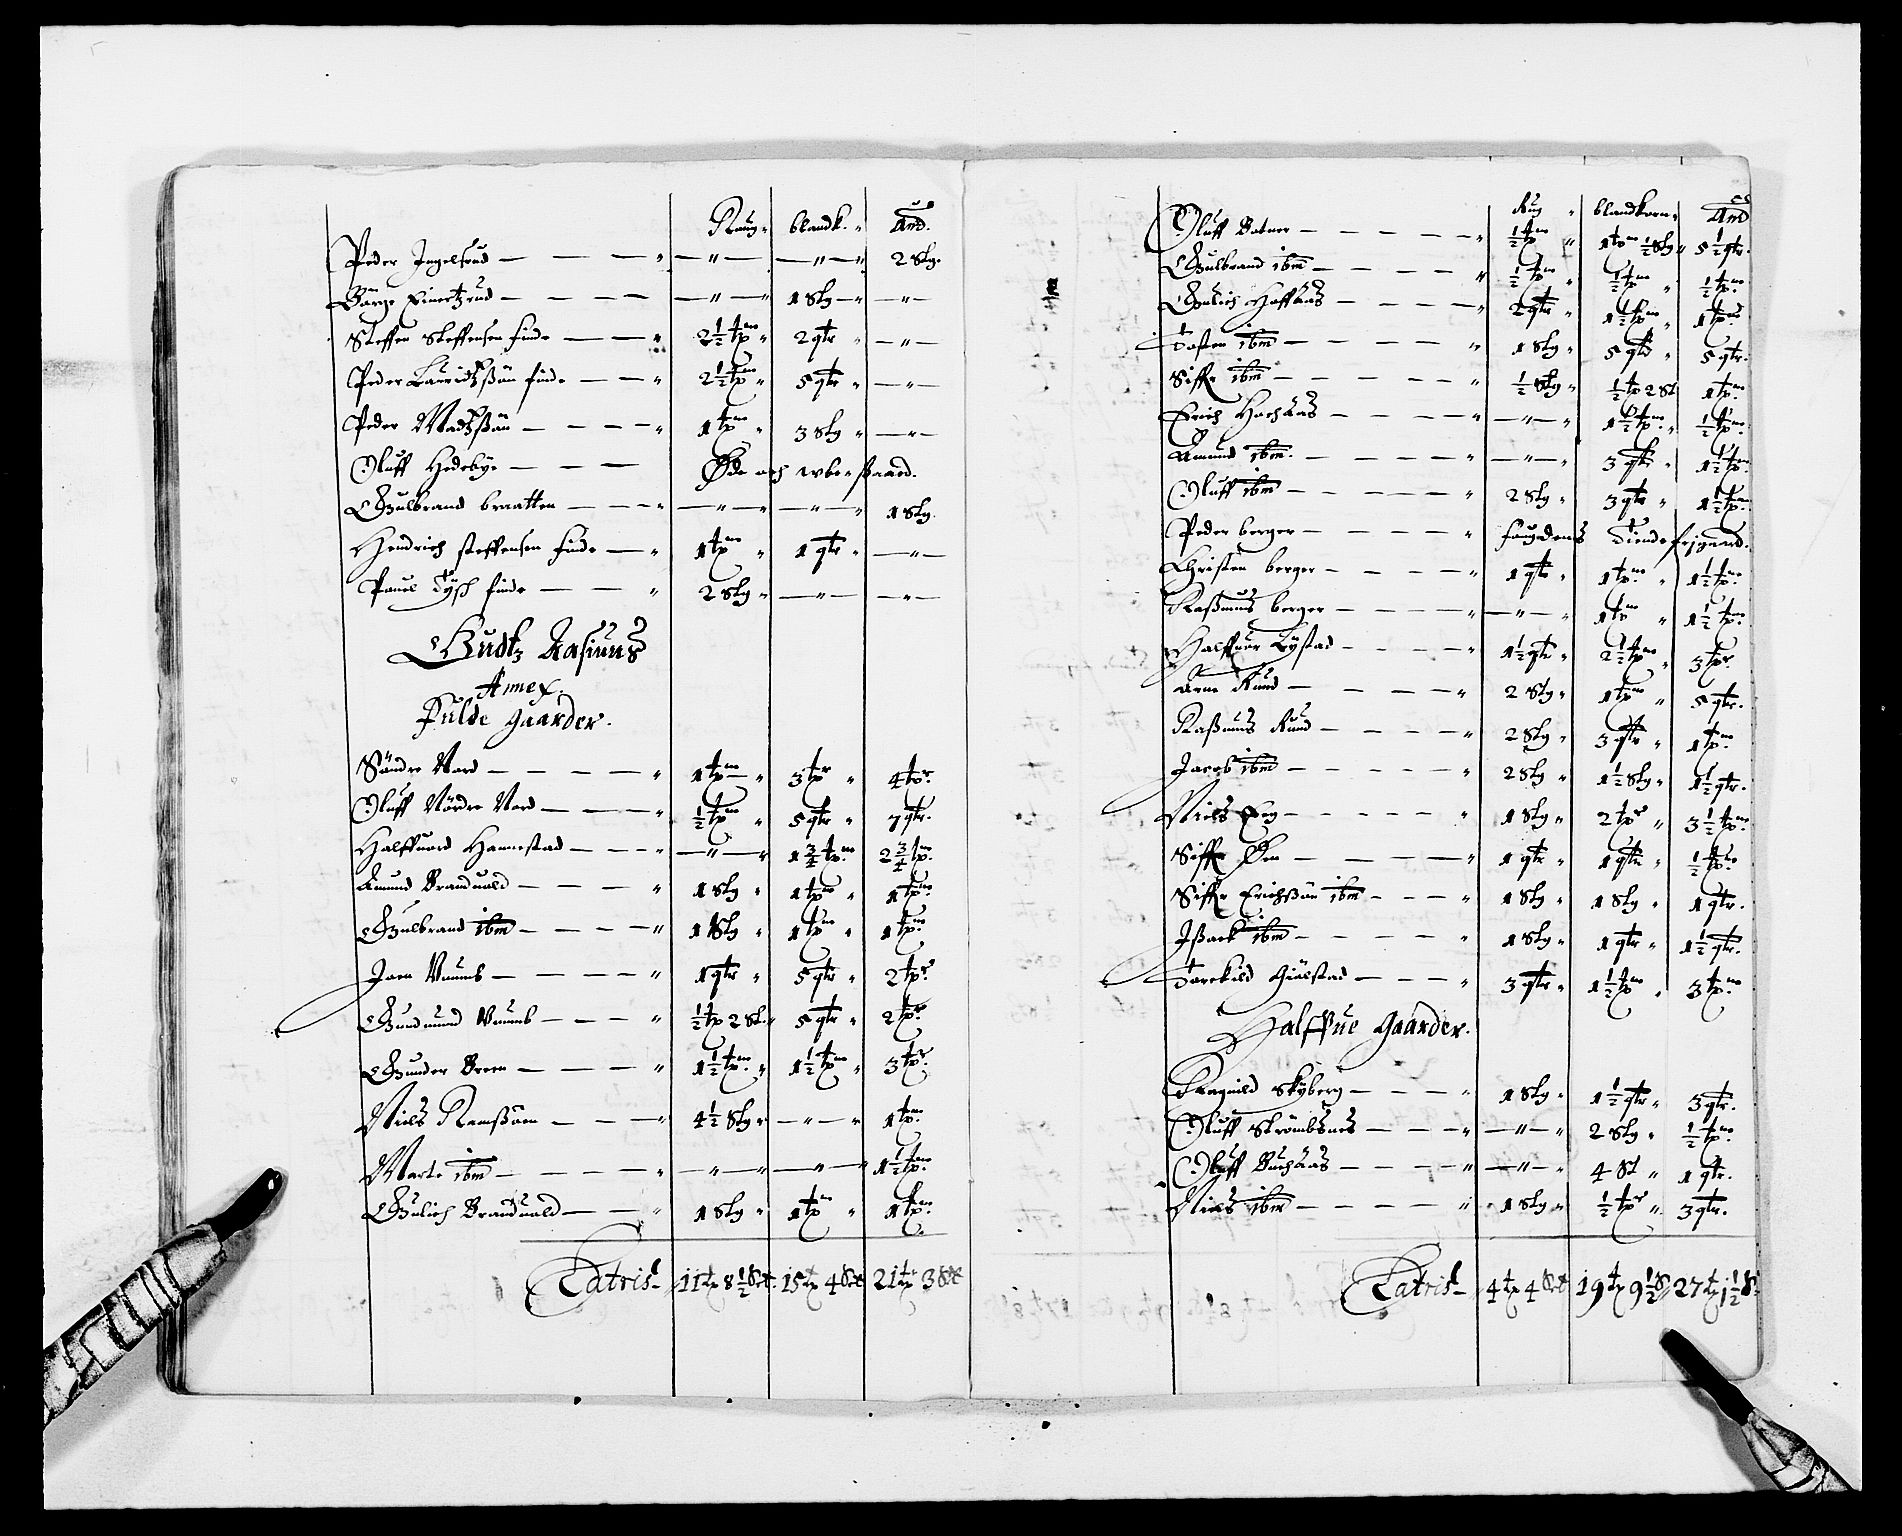 Raug blandk. And.
Peder Ingelsrud — — — " — " — — " — 2 Skg.
Börge Einertzrud — — — — " — 1 Skg — " —
Steffen Steffensen finde — — 2½ tp 2 qtr — " —
Peder Lauridtzßön finde — — 2½ tp 5 qtr — " —
Peder Madtzßön — — — — 1 tp 3 Skg — " —
Oluff Hedebye — — — Øde och
Gulbrand braatten — — — — " — — " — 1 Skg.
Hendrich Steffensen finde — 1 tp 1 qtr — " —
Pouel Tysk finde — — — 2 Skg — " — — " —
Annex.
Fulde Gaarder.
Søndre Nord — — — — 1 tp 3 tp 4 tp
Oluff Nördre Nord — — — ½ tp 5 qtr 7 qtr.
Halffuord Hannestad — — — — " — 1¾ tp 2¾ tp
Amund Branduold — — — 1 Skg 1 tp 1 tp
Gulbrand ibm — — — — 1 Skg 1 tp 1 tp
Joen — — — — 1 qtr 5 qtr 2 tp
Gudmund — — — ½ tp 2 Sk. 5 qtr 2 tp
Gunder Breen — — — 1½ tp 1½ tp 3 tp
Niels Ramßöen — — — 4½ Skg — " — 1 tp
Marte ibm — — — — — " — — " — 1½ tp
Gulich Branduold — — 1 Skg 1 tp 1 tp
Latris 11 tp 8½ Sk 15 tp 4 Sk 21 tp 3 Sk
Rug blandkorn And
Oluff Botner — — — — ½ tp 1 tp ½ Skg 5½ qtr.
Gulbrand ibm — — — — ½ tp ½ tp ½ tp
Gulich Hoffaas — — — — 2 qtr 1½ tp 1 tp
Tosten ibm — — — — 1 Skg 5 qtr 5 qtr.
Siffr ibm — — — — ½ Skg ½ tp 2 Sk 1 tp
Erich Hochaas — — — — — " — 1½ tp ½ tp
Amund ibm — — — — — " — 3 qtr 1½ tp
Oluff ibm — — — — 2 Skg 3 qtr 1½ tp
Peder berger — — — — fougdens Tiende frj gaard.
Christen berger — — — — 1 qtr 1 tp 1½ tp
Raßmus berger — — — — — " — 1 tp 1½ tp
Halffuor Lystad — — — — 1½ qtr 2½ tp 3 tp
Arne Rund — — — — 2 Skg 1 tp 5 qtr.
Raßmus Rund — — — — 2 Skg 3 qtr 1 tp
Jacob ibm — — — — 2 Skg 1½ Skg 1½ qtr.
Niels Eeg — — — — 1 Skg 2 tp 3½ tp
Siffr Øen — — — — 1 qtr 1 qtr ½ tp
Siffr Erichßön ibm — — — 1 Skg 1 Skg 1 qtr.
Ißack ibm — — — — 1 Skg 1 qtr 1½ qtr.
Torckild Giölstad — — — 3 qtr 1½ tp 3 tp
Halffue Gaarder.
Ragnild Skyberg — — — 1 Skg 1½ qtr 3 qtr.
Oluff Strömbsnes — — — — " — 2 Skg ½ tp
Oluff Buchaas — — — — — " — 4 Sk 1 qtr.
Niels ibm — — — — 1 Skg ½ tp 3 qtr.
Latris 4 tp 4 Sk 19 tp 9½ S 27 tp 1½ S